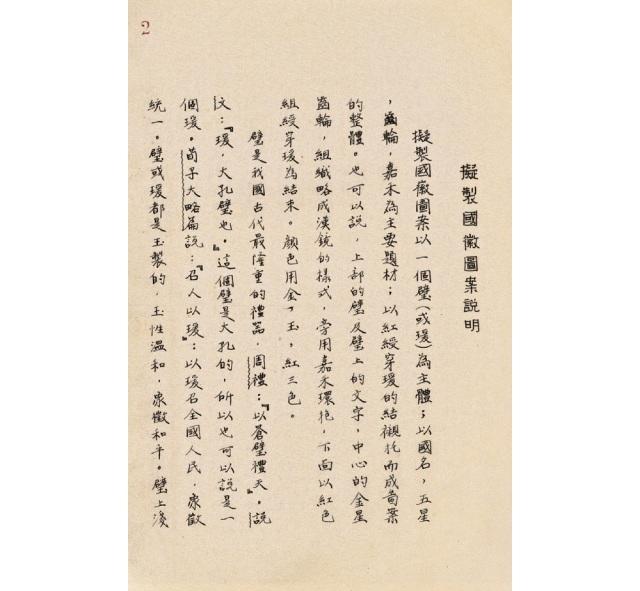 2
擬製國徽圖案説明
擬製國徽圖案以一個璧(或瑗)為主體；以國名，五星
，齒輪，嘉禾為主要題材；以紅綬穿瑗的結襯托而成啚案
的整體。也可以説，上部的璧及璧上的文字，中心的金星
齒輪，組織略成漢鏡的樣式，旁用嘉禾環抱，下面以紅色
組綬穿瑗為結束。顏色用金、玉，紅三色。
璧是我國古代最隆重的禮器，周禮：『以蒼璧禮天』。説
文：『瑗，大孔璧也。』這個璧是大孔的，所以也可以説是一
個瑗。荀子大略篇説：『召人以瑗』：以瑗召全國人民，象徵
統一。璧或瑗都是玉製的，玉性溫和，象徵和平。璧上淺